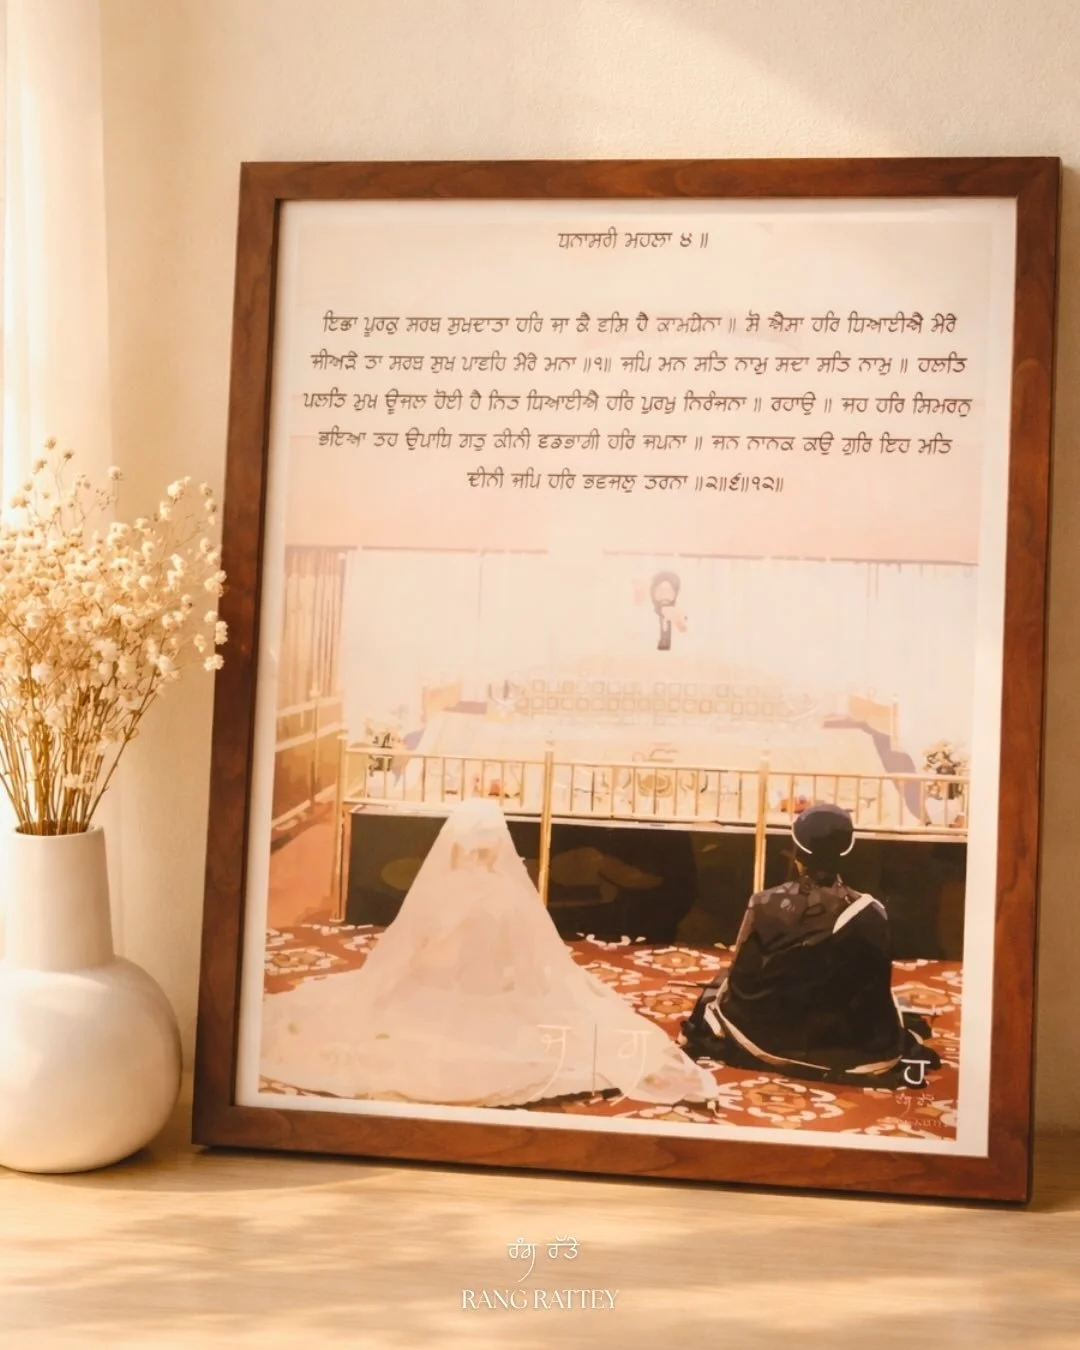 ਧਨਾਸਰੀ ਮਹਲਾ ੪ ॥
ਇਛਾ ਪੂਰਕੁ ਸਰਬ ਸੁਖਦਾਤਾ ਹਰਿ ਜਾ ਕੈ ਵਸਿ ਹੈ ਕਾਮਧੇਨਾ ॥ ਸੋ ਐਸਾ ਹਰਿ ਧਿਆਈਐ ਮੇਰੇ
ਜੀਅੜੇ ਤਾ ਸਰਬ ਸੁਖ ਪਾਵਹਿ ਮੇਰੇ ਮਨਾ ॥੧॥ ਜਪਿ ਮਨ ਸਤਿ ਨਾਮੁ ਸਦਾ ਸਤਿ ਨਾਮੁ ॥ ਹਲਤਿ
ਪਲਤਿ ਮੁਖ ਊਜਲ ਹੋਈ ਹੈ ਨਿਤ ਧਿਆਈਐ ਹਰਿ ਪੁਰਖੁ ਨਿਰੰਜਨਾ ॥ ਰਹਾਉ ॥ ਜਹ ਹਰਿ ਸਿਮਰਨੁ
ਭਇਆ ਤਹ ਉਪਾਧਿ ਗਤੁ ਕੀਨੀ ਵਡਭਾਗੀ ਹਰਿ ਜਪਨਾ ॥ ਜਨ ਨਾਨਕ ਕਉ ਗੁਰਿ ਇਹ ਮਤਿ
ਦੀਨੀ ਜਪਿ ਹਰਿ ਭਵਜਲੁ ਤਰਨਾ ॥੨॥੬॥੧੨॥
ਜ | ਗ
ਰੰਗ ਰੱਤੇ
ਰੰਗ ਰੱਤੇ
RANG RATTEY